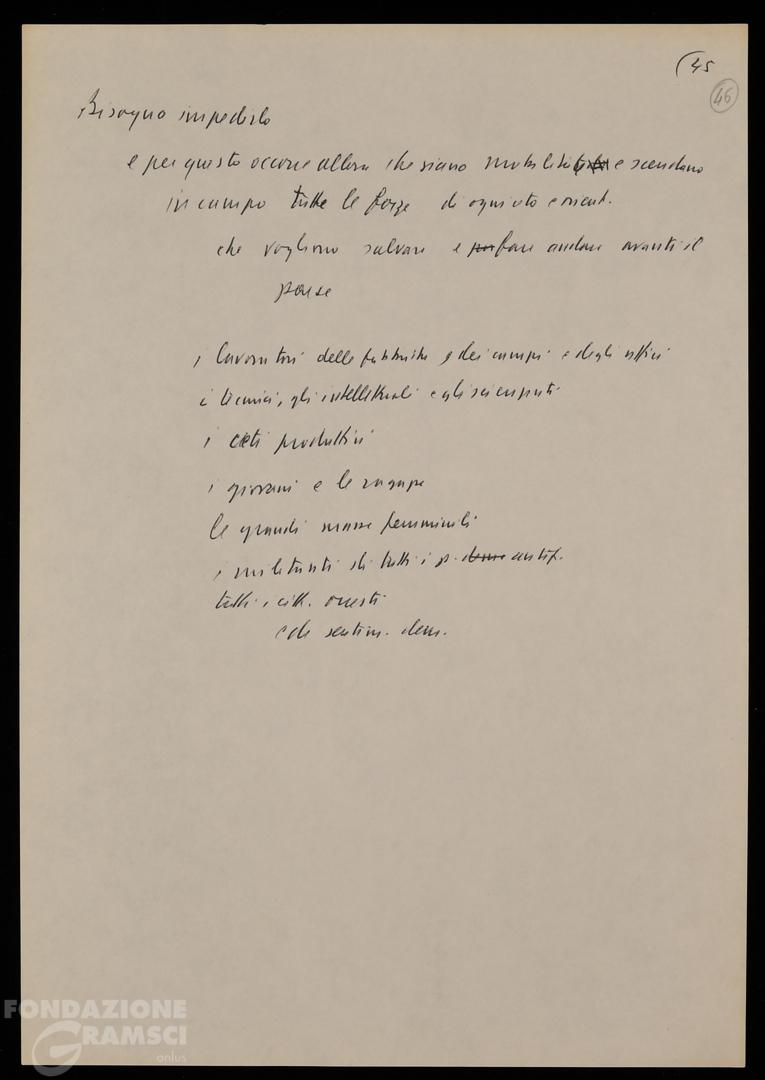 (45
46
Bisogna impedirlo
e per questo occorre allora che siano mobilitate e scendano
in campo tutte le forze di ogni ceto e orient.
che vogliono salvare e per fare andare avanti il
paese
i lavoratori delle fabbriche e dei campi e degli uffici
i tecnici, gli intellettuali e gli scienziati
i ceti produttivi
i giovani e le ragazze
le grandi masse femminili
i militanti di tutti i p. dem antif.
tutti i citt. onesti
e di sentim. dem.
FONDAZIONE
GRAMSCI
onlus